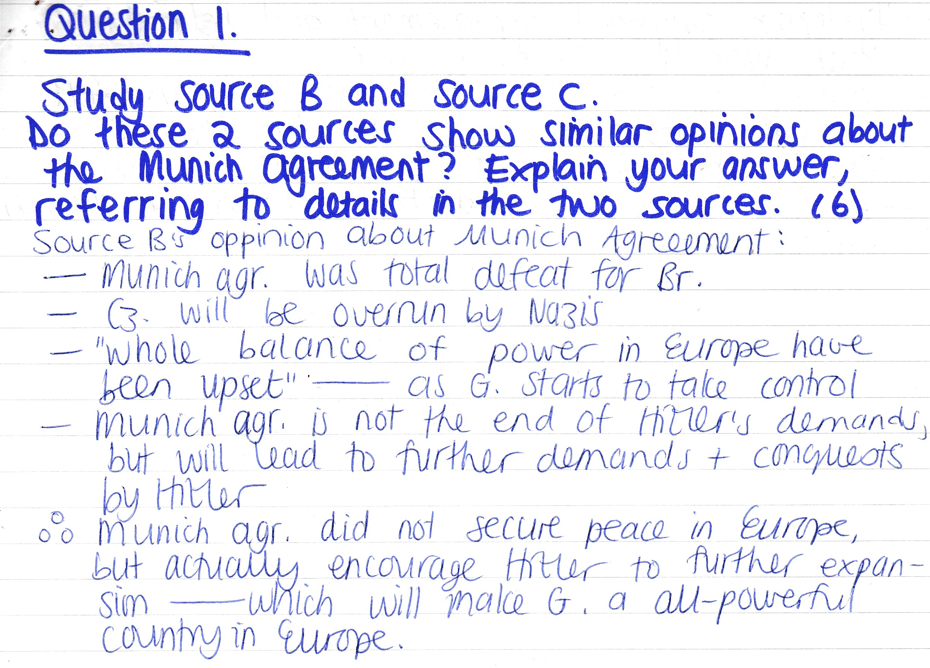 Question 1.
Study source B and source C.
Do these 2 sources show similar opinions about
the Munich agreement? Explain your answer,
referring to details in the two sources. (6)
Source B's oppinion about Munich Agreeement:
— Munich agr. was total defeat for Br.
— Cz. will be overrun by Nazis
— "Whole balance of power in Europe have
been upset" — as G. starts to take control
— Munich agr. is not the end of Hitler's demands,
but will lead to further demands + conquests
by Hitler
∴ Munich agr. did not secure peace in Europe,
but actually encourage Hitler to further expan-
sim — which will make G. a all-powerful
country in Europe.